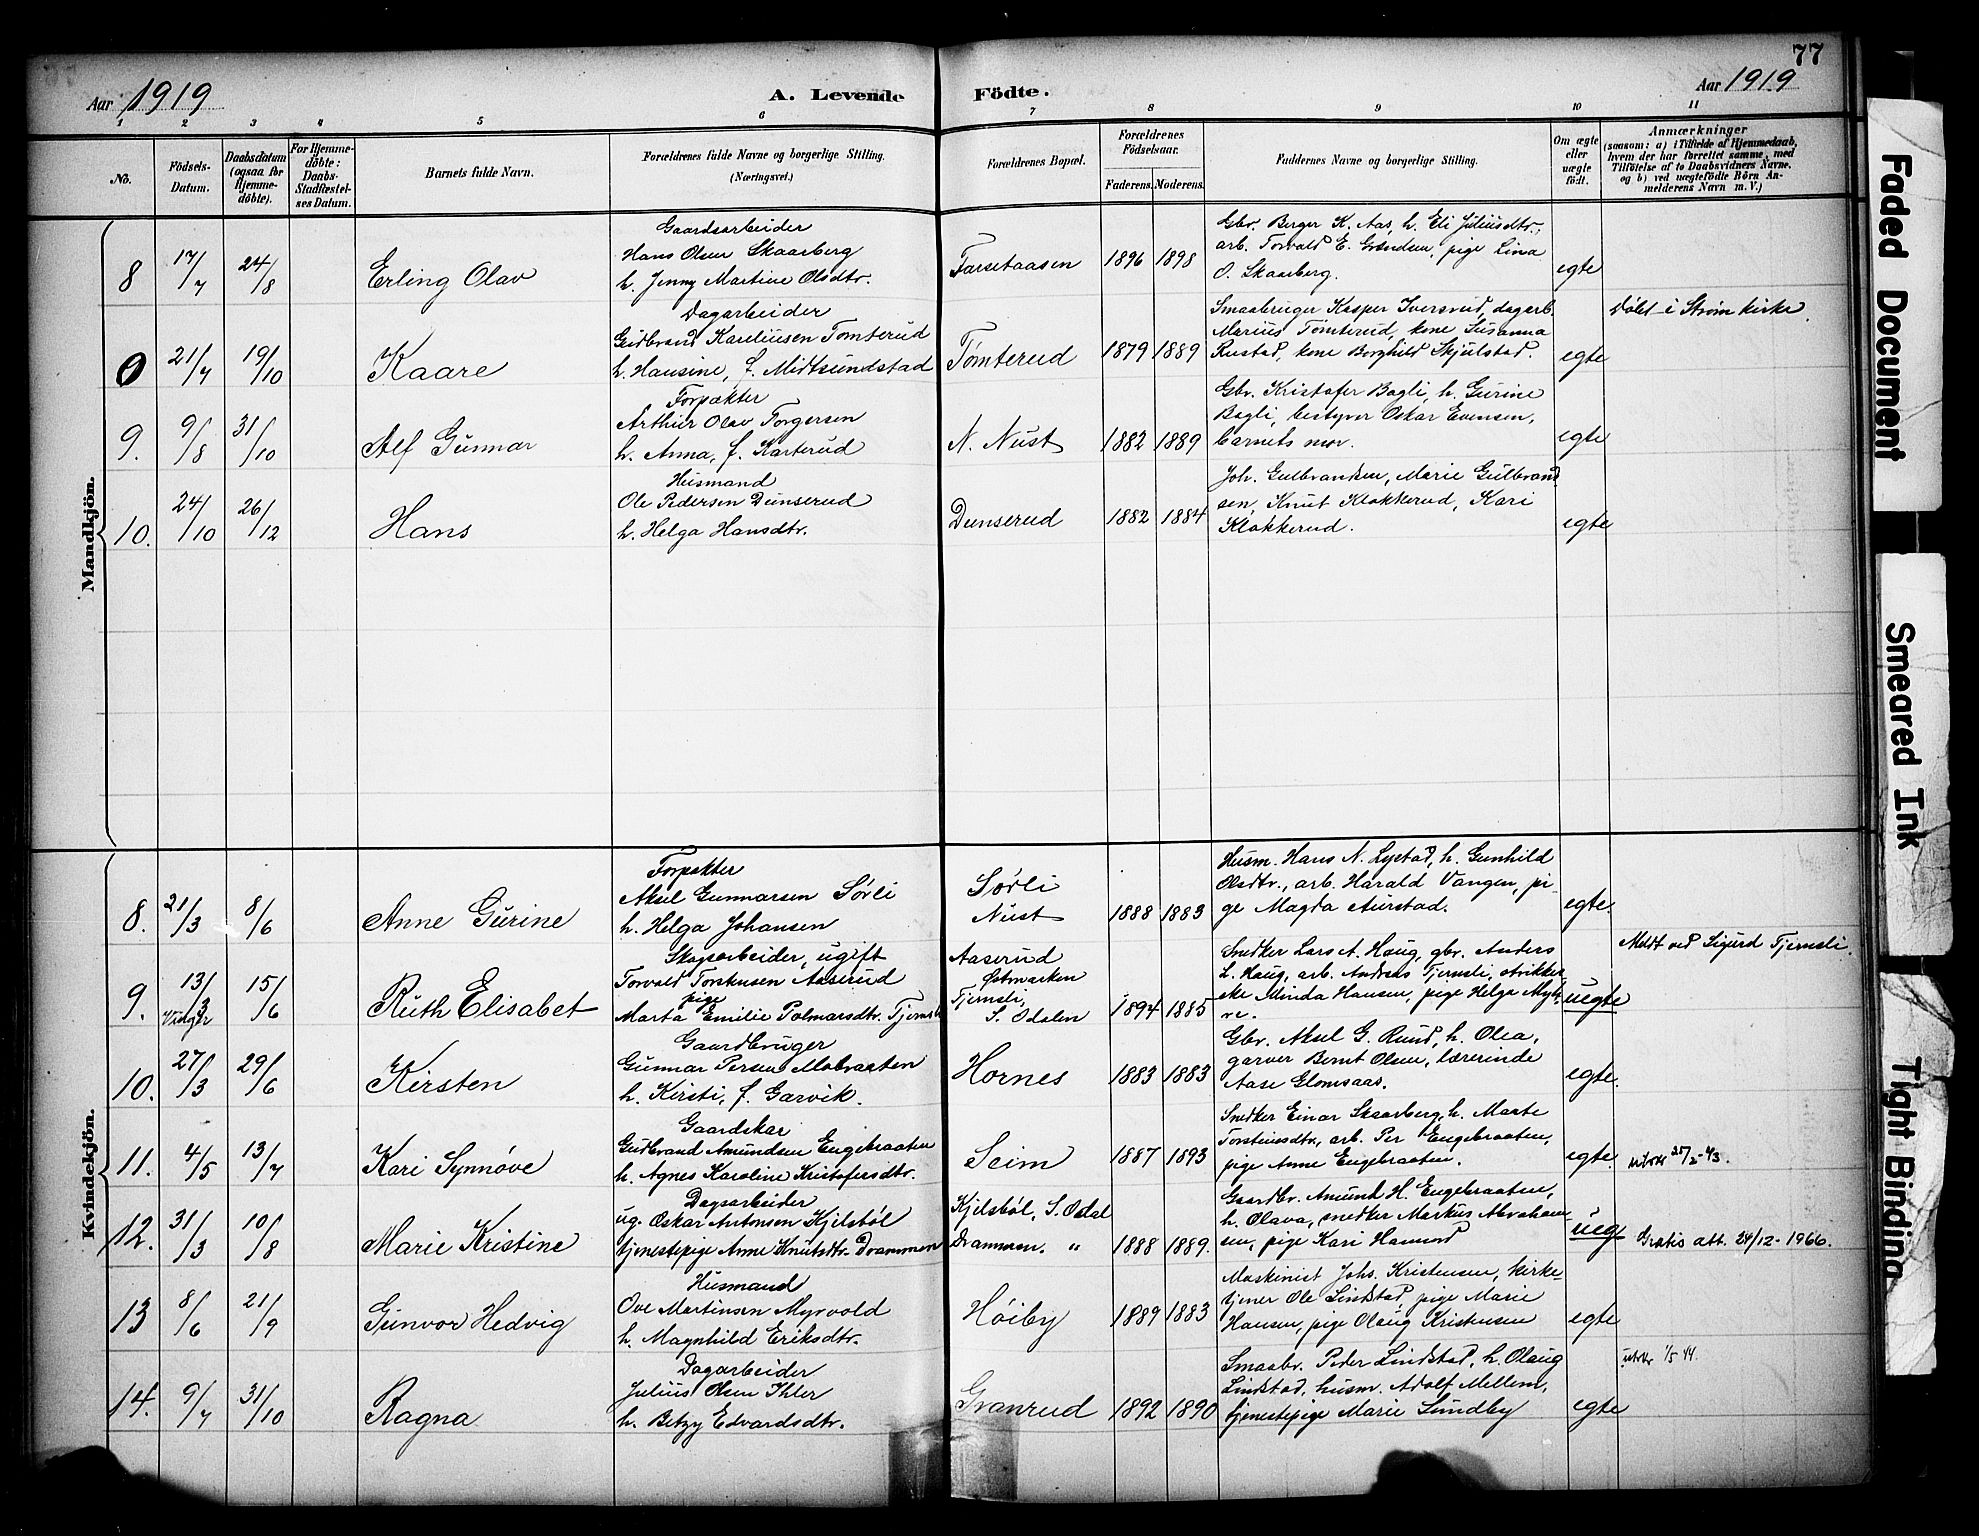 77
Aar 1919
A. Levende Födte.
Aar 1919
1 2 3 4 5 6 7 8 9 10 11
No.
Födsels-
Datum.
Daabsdatum
(ogsaa for
Hjemme-
döbte).
For Hjemme-
döbte:
Daabs-
Stadfæstel-
ses Datum.
Barnets fulde Navn.
Forældrenes fulde Navne og borgerlige Stilling.
(Næringsvei.)
Forældrenes Bopæl.
Forældrenes
Födselsaar.
Faderens. Moderens.
Faddernes Navne og borgerlige Stilling.
Om ægte
eller
uægte
födt.
Anmærkninger
(saasom: a) i Tilfælde af Hjemmedaab,
hvem der har forrettet samme, med
Tilföielse af to Daabsvidners Navne.
og b) ved uægtefödte Börn An-
melderens Navn m. V.)
Mandkjön.
8 17/7 24/8 Erling Olav
Gaardsarbeider
Hans Olsen Skaarberg
h. Jenny Martine Olsdtr.
Farsetaasen 1896 1898
Gbr. Berger K. Aas, h. Eli Juliusdtr.,
arb. Torvald E. Grandsen, pige Lina
O. Skaarberg.
egte
0 21/7 19/10 Kaare
Dagarbeider
Gudbrand Kareliusen Tomterud
h. Hansine, f. Midtsundstad
Tømterud 1879 1889
Smaabruger Kasper Iversrud, dagarb.
Marius Tømterud, kone Susanna
Rustad, kone Borghild Skjulstad.
egte
Døbt i Strøm kirke.
9. 9/8 31/10 Alf Gunnar
Forpakter
Arthur Olav Torgersen
h. Anna, f. Karterud
N. Nust 1882 1889
Gbr. Kristofer Bagli, h. Gurine
Bagli, bestyrer Oskar Evensen,
barnets mor.
egte
10. 24/10 26/12 Hans
Husmand
Ole Pedersen Dunserud
h. Helga Hansdtr.
Dunserud 1882 1884
Joh. Gulbrandsen, Marie Gulbrand
sen, Knut Klokkerud, Kari
Klokkerud.
egte
Kvindekjön.
8. 21/3 8/6 Anne Gurine
Forpakter
Aksel Gunnarsen Sørli
h. Helga Johansen
Sørli
Nust
1888 1883
Husm. Hans N. Lystad, h. Gunhild
Olsdtr., arb. Harald Vangen, pi-
ge Magda Aurstad.
egte.
9. 13/3 15/6 Ruth Elisabet
Vinger
Skogsarbeider, ugift
Torvald Torstensen Aaserud
pige
Marta Emilie Palmarsdtr. Tjernsli
Aaserud
Østmarken
Tjernsli,
S. Odalen
1894 1885
Snedker Lars A. Haug, gbr. Anders
L. Haug, arb. Andreas Tjernsli, strikker
ske Minda Hansen, pige Helga Myh-
re.
uegte
Meldt ved Sigurd Tjernsli.
10. 27/3 29/6 Kirsten
Gaardbruger
Gunnar Persen Mobraaten
h. Kirsti, f. Garvik.
Hornes 1883 1883
Gbr. Aksel G. Rund, h. Olea,
garver Bernt Olsen, lærerinde
Aase Glomsaas.
egte.
11. 4/5 13/7 Kari Synnøve
Gaardskar
Gudbrand Amundsen Engebraaten
h. Agnes Karoline Kristofersdtr.
Seim 1887 1893
Snedker Einar Skaarberg, h. Marte
Torsteinsdtr., arb. Per Engebraaten,
pige Anne Engebraaten.
egte.
12. 31/3 10/8 Marie Kristine
Dagsarbeider
ug. Oskar Antonsen Kjilsbøl
tjenestepige Anne Knutsdtr. Drammen
Kjelsbøl, S. Odal
Drammen. "
1888 1889.
Gaardbr. Amund H. Engebraaten,
h. Olava, snedker Markus Abraham
sen, pige Kari
ueg
Gratis att. 24/12-1966.
13 8/6 21/9 Gunvor Hedvig
Husmand
Ove Martinsen Myrvold
h. Magnhild Eriksdtr.
Høiby 1889 1883
Maskinist Johs. Kristensen, kirke-
tjener Ole Lindstad, pige Marie
Hansen, pige Olaug Kristensen
egte
14. 9/7 31/10 Ragna
Dagarbeider
Julius Olsen Ihler
h. Betzy Edvardsdtr.
Granrud 1892 1890
Smaabr. Peder Lindstad, h. Olaug
Lindstad, husm. Adolf Mellem,
tjenestepige Marie Sundby
egte
utskr 1/5 44.
Faded Document
Smeared Ink
Tight Binding